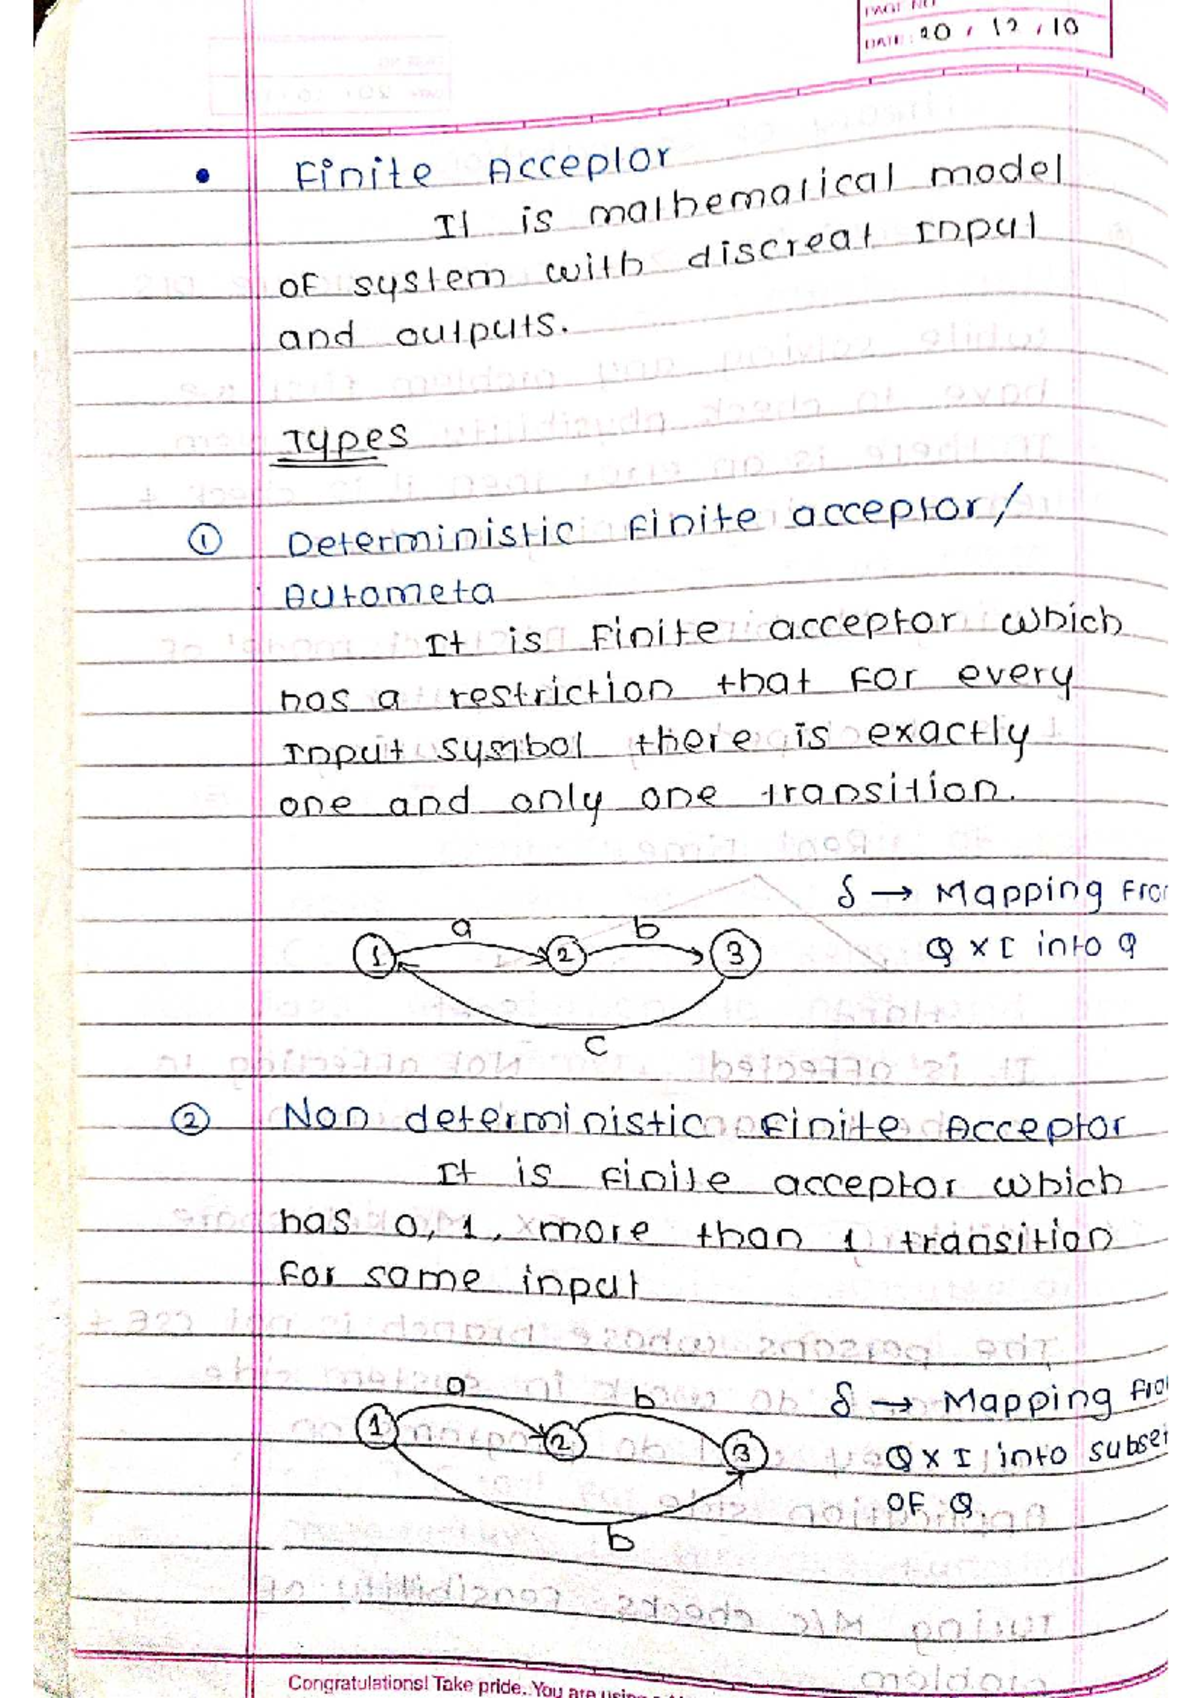 PAGE NO
DATE: 20 / 12 / 10
• Finite Acceptor
It is mathematical model
of system with discreat Input
and outputs.
Types
① Deterministic Finite acceptor/
Autometa
It is Finite acceptor which
has a restriction that For every
Input symbol there is exactly
one and only one transition.
δ → Mapping From
Q x I into Q
a
b
1
2
3
c
② Non deterministic Finite Acceptor
It is finite acceptor which
has 0, 1, more than 1 transition
For same input
δ → Mapping From
Q x I into subset
OF Q
a
b
1
2
3
b
Congratulations! Take pride. You are using